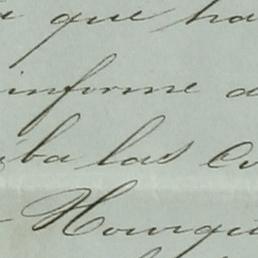 que ha
informe a
ba las co
Hourqui